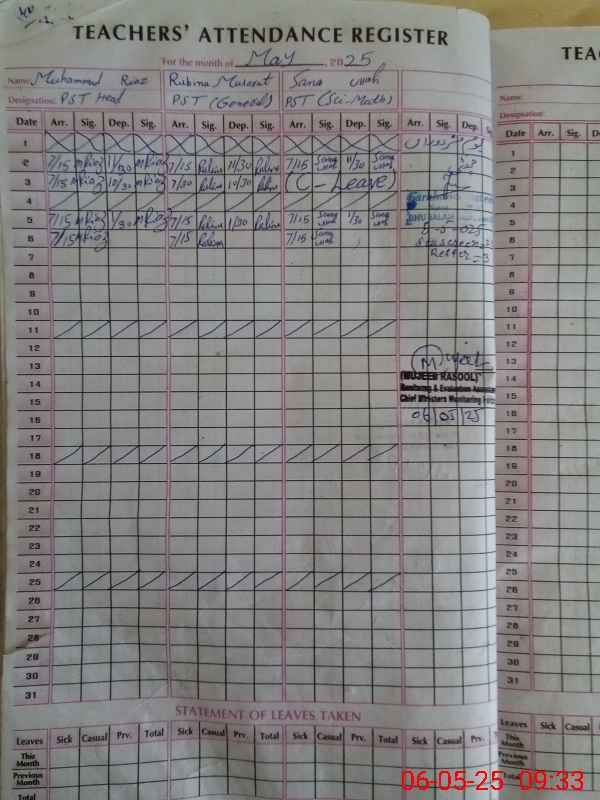 TEACHERS' ATTENDANCE REGISTER
For the month of May, 2025
Name: Muhammad Riaz Rubina Musarat Sana ullah
Designation: PST Head PST (General) PST (Sci-Math)
Date Arr. Sig. Dep. Sig. Arr. Sig. Dep. Sig. Arr. Sig. Dep. Sig. Arr. Sig. Dep. Sig.
1
2 7/15 MRiaz 11/30 MRiaz 7/15 Rubina 11/30 Rubina 7/15 Sana ullah 11/30 Sana ullah
3 7/15 MRiaz 10/30 MRiaz 7/30 Rubina 10/30 Rubina (C-Leave)
4
5 7/15 MRiaz 1/30 MRiaz 7/15 Rubina 1/30 Rubina 7/15 Sana ullah 1/30 Sana ullah
6 7/15 MRiaz 7/15 Rubina 7/15 Sana ullah
7
8
9
10
11
12
13
14
15
16
17
18
19
20
21
22
23
24
25
26
27
28
29
30
31
M
(MUJEEB RASOOL)
Monitoring & Evaluation
Chief Ministers Monitoring
06/05/25
STATEMENT OF LEAVES TAKEN
Leaves Sick Casual Prv. Total Sick Casual Prv. Total Sick Casual Prv. Total Sick Casual Prv.
This Month
Previous Month
Total
TEA
Name:
Designation:
Date Arr. Sig.
1
2
3
4
5
6
7
8
9
10
11
12
13
14
15
16
17
18
19
20
21
22
23
24
25
26
27
28
29
30
31
Leaves Sick Casual
This Month
Previous Month
Total
06-05-25 09:33